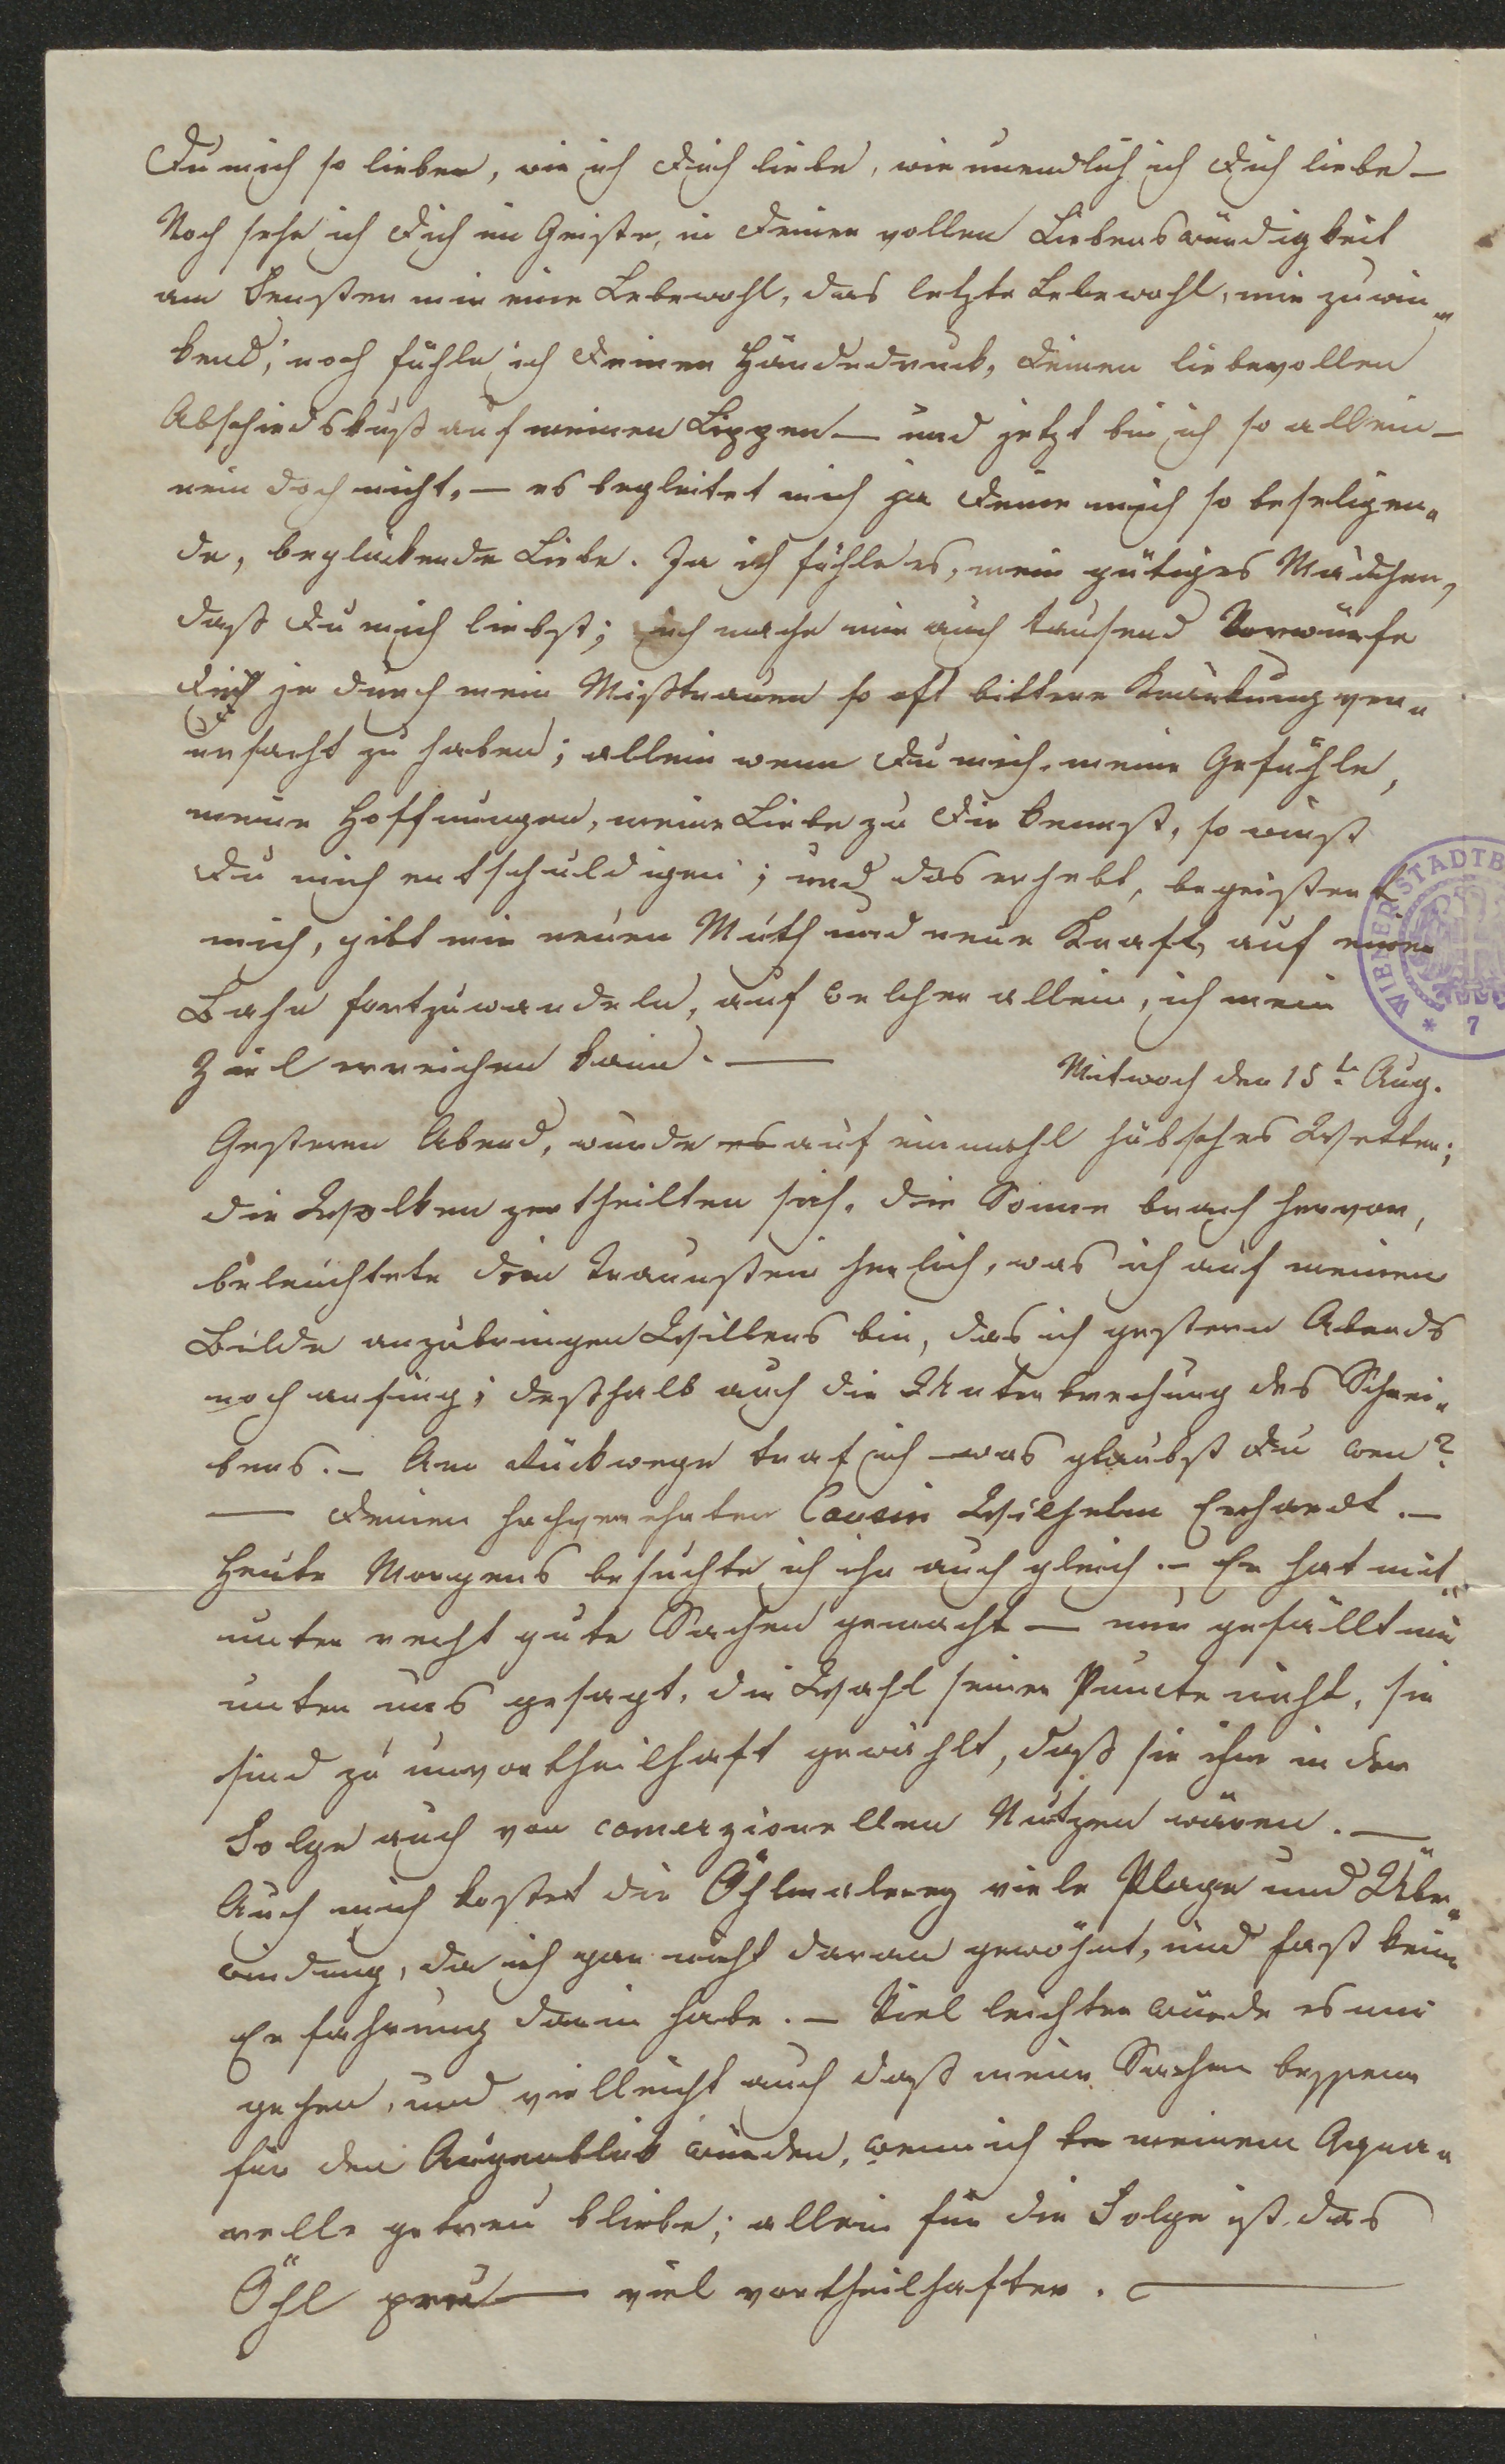 Du mich so lieben, wie ich Dich liebe, wie unendlich ich Dich liebe –
Noch sehe ich Dich im Geiste, in Deiner vollen Liebenswürdigkeit
am Fenster mir eine Lebewohl, das letzte Lebewohl, mir zuwin„
kend; noch fühle ich Deinen Händedruck, Deinen liebevollen
Abschiedskuß auf meinen Lippen – und jetzt bin ich so allein –
nein doch nicht, – es begleitet mich ja Deine mich so beseligen„
de, beglückende Liebe. Ja ich fühle es, mein gütiges Mädchen,
daß Du mich liebst; ich mache mir auch tausend Vorwürfe
Dir je durch mein Mißtrauen so oft bittere Kränkung ver„
ursacht zu haben; allein wenn Du mich, meine Gefühle,
meine Hoffnungen, meine Liebe zu Dir kennst, so wirst
Du mich entschuldigen; und das erhebt, begeistert
mich, gibt mir neuen Muth und neue Kraft, auf einer
Bahn fortzuwandeln, auf welcher allein, ich mein
Ziel erreichen kann. –
Mitwoch den 15te Aug.
Gestern Abend, wurde es auf einmahl hübsches Wetter;
die Wolken zertheilten sich, die Sonne brach hervor,
beleuchtete den Traunstein herlich, was ich auf meinem
Bilde anzubringen Willens bin, das ich gestern Abends
noch anfing; deßhalb auch die Unterbrechung des Schrei„
bens. – Am Rückwege traf ich – was glaubst Du wen?
– Deinen hochverehrten Cousin Wilhelm Erhardt. –
Heute Morgens besuchte ich ihn auch gleich. – Er hat mit„
unter recht gute Sachen gemacht – nur gefällt mir
unter uns gesagt, die Wahl seiner Puncte nicht, sie
sind zu unvortheilhaft gewählt, daß sie ihm in der
Folge auch von comerzionellen Nutzen wären. –
Auch mich kostet die Öhlmalerey viele Plage und Über„
windung, da ich gar nicht daran gewöhnt, und fast keine
Erfahrung darin habe. – Viel leichter würde es mir
gehen, und vielleicht auch daß meine Sachen besser
für den Augenblick würden, wenn ich meinem Aqua„
relle getreu bliebe; allein für die Folge ist das
Öhl viel vortheilhafter. –
WIENER STADTB
* 7